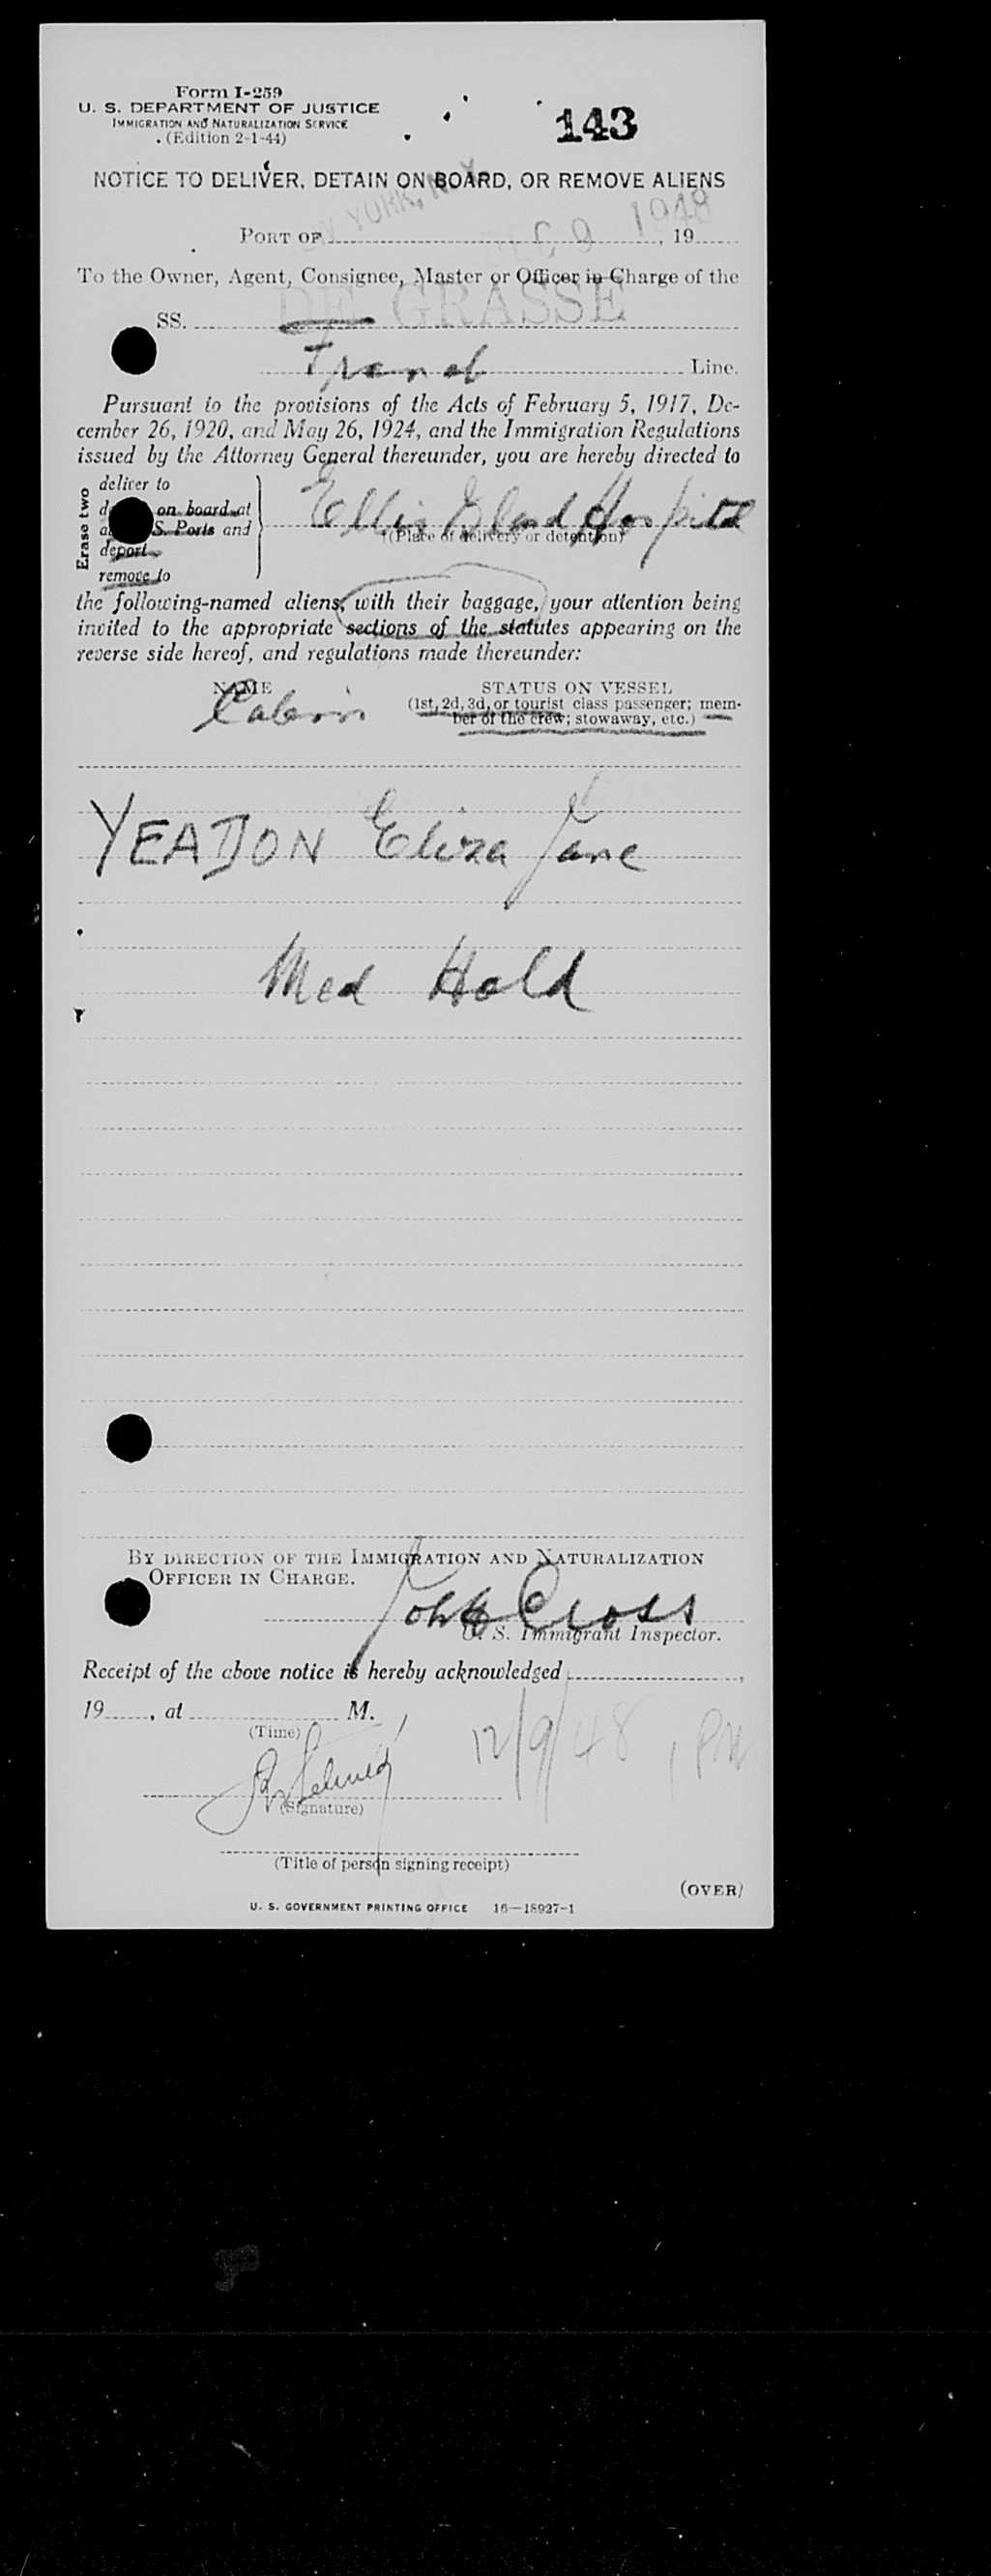 Form I-259
U. S. DEPARTMENT OF JUSTICE
IMMIGRATION AND NATURALIZATION SERVICE
(Edition 2-1-44)
143
NOTICE TO DELIVER, DETAIN ON BOARD, OR REMOVE ALIENS
YORK, N.Y.
PORT OF 9 1948, 19
To the Owner, Agent, Consignee, Master or Officer in Charge of the
SS. DE GRASSE
French Line.
Pursuant to the provisions of the Acts of February 5, 1917, De-
cember 26, 1920, and May 26, 1924, and the Immigration Regulations
issued by the Attorney General thereunder, you are hereby directed to
Erase two
deliver to
on board at
S. Ports and
deport
remove to
Ellis Island Hospital
(Place of delivery or detention)
the following-named aliens, with their baggage, your attention being
invited to the appropriate sections of the statutes appearing on the
reverse side hereof, and regulations made thereunder:
NAME STATUS ON VESSEL
Cabin (1st, 2d, 3d, or tourist class passenger; mem-
ber of the crew; stowaway, etc.)
YEADON Eliza Jane
Med Hold
BY DIRECTION OF THE IMMIGRATION AND NATURALIZATION
OFFICER IN CHARGE.
Cross
U. S. Immigrant Inspector.
Receipt of the above notice is hereby acknowledged ,
19 , at M.
(Time)
12/9/48 1 PM
(Signature)
(Title of person signing receipt)
(OVER)
U. S. GOVERNMENT PRINTING OFFICE 16—18927-1